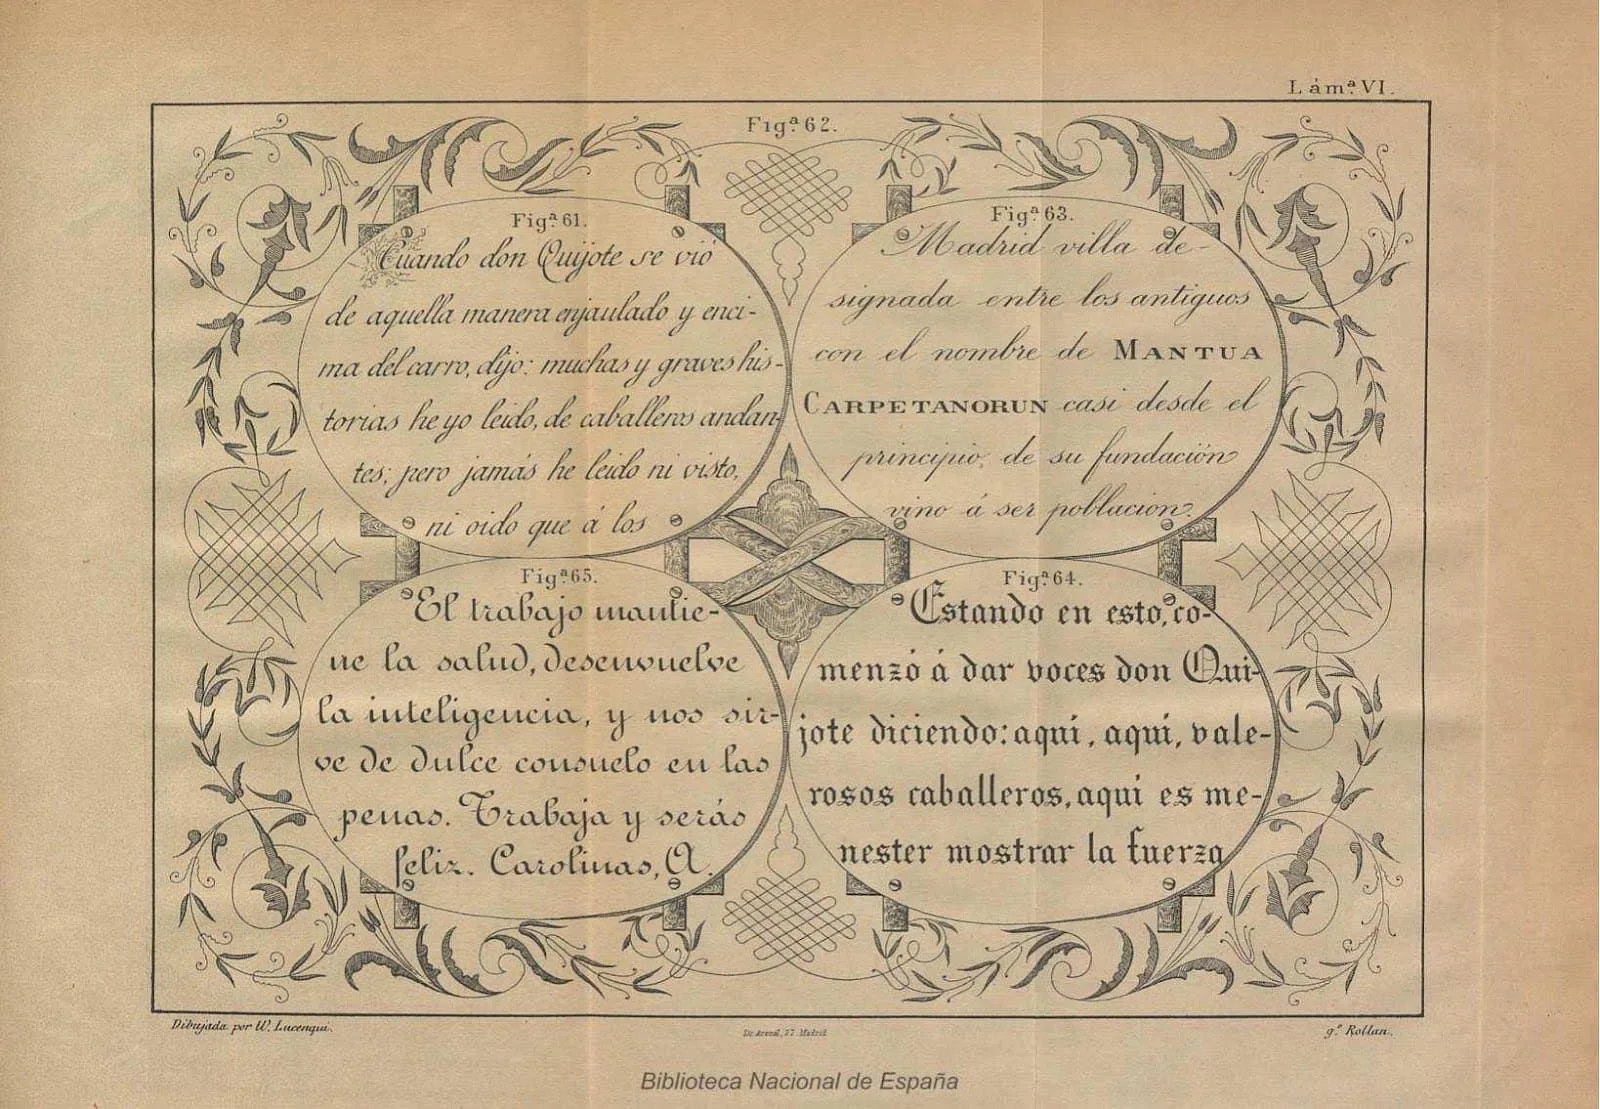 Lámª. VI.
Figª. 62.
Figª. 61.
Cuando don Quijote se vió
de aquella manera enjaulado y enci-
ma del carro, dijo: muchas y graves his-
torias he yo leido, de caballeros andan-
tes; pero jamás he leido ni visto,
ni oido que á los
Figª. 63.
Madrid villa de-
signada entre los antiguos
con el nombre de MANTUA
CARPETANORUN casi desde el
principio, de su fundación
vino á ser poblacion.
Figª. 65.
El trabajo mantie-
ne la salud, desenvuelve
la inteligencia, y nos sir-
ve de dulce consuelo en las
penas. Trabaja y serás
feliz. Carolinas, A.
Figª. 64.
Estando en esto, co-
menzó á dar voces don Qui-
jote diciendo: aquí, aquí, vale-
rosos caballeros, aquí es me-
nester mostrar la fuerza
Dibujada por W. Lucenqui.
Madrid
g.º Rollan.
Biblioteca Nacional de España